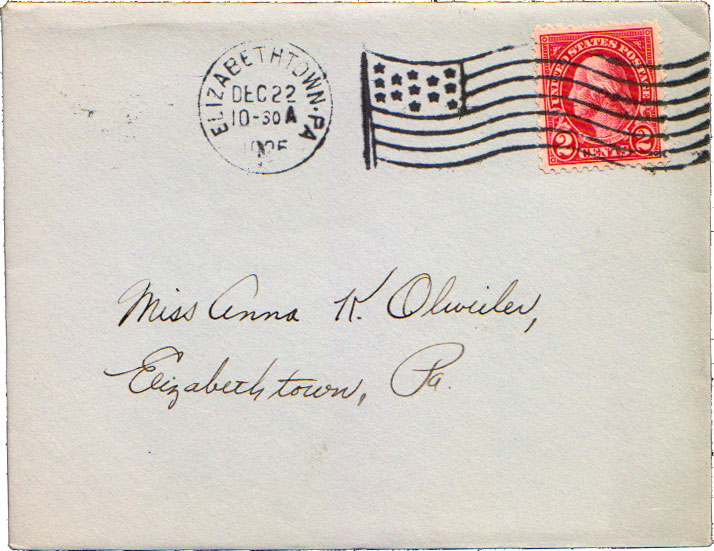 ELIZABETHTOWN.PA
DEC 22
10-30 A
UNITED STATES POSTAGE
2 CENTS 2
Miss Anna K. Olweiler,
Elizabethtown, Pa.